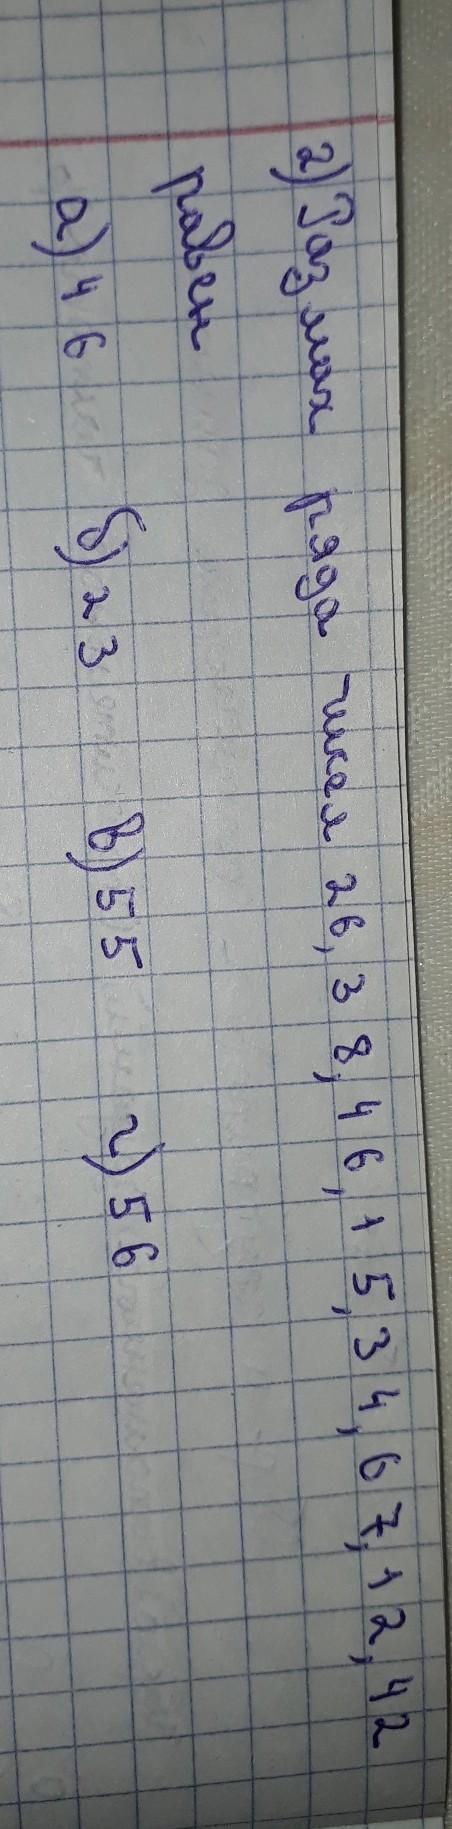 2) Размах ряда чисел 26, 38, 46, 15, 34, 67, 12, 42
равен
а) 46 б) 23 в) 55 г) 56